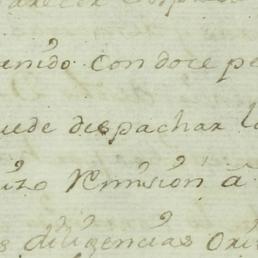 unido con doce pe
uede despachar l
izo Remision â
s diligencias Ori